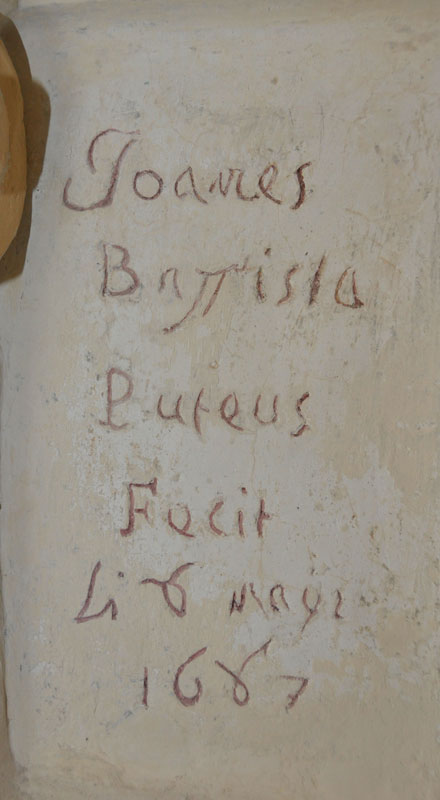 Joanes
Battista
Puteus
Fecit
Li 8
1687